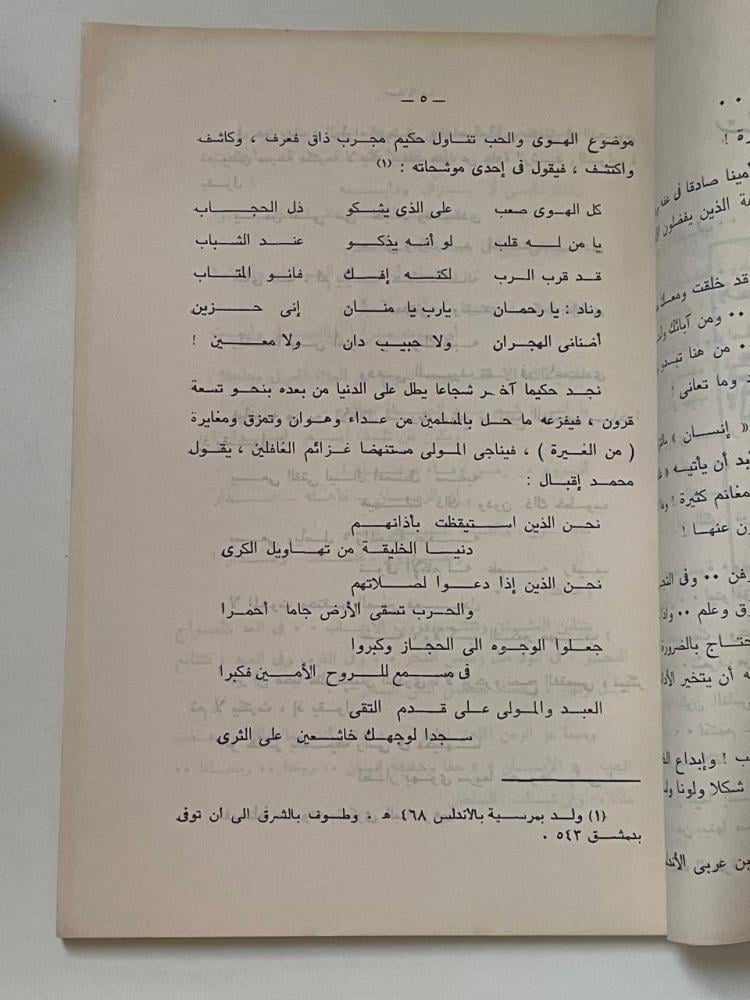 — ٥ —
موضوع الهوى والحب تناول حكيم مجرب ذاق فعرف ، وكاشف
واكتشف ، فيقول فى إحدى موشحاته : (١)
كل الهوى صعب على الذى يشكو ذل الحجاب
يا من له قلب لو أنه يذكو عند الشباب
قد قرب الرب لكنه إفك فانو المتاب
وناد : يا رحمان يارب يا منان إنى حزين
أضنانى الهجران ولا حبيب دان ولا معين !
نجد حكيما آخر شجاعا يطل على الدنيا من بعده بنحو تسعة
قرون ، فيفزعه ما حل بالمسلمين من عداء وهوان وتمزق ومغايرة
( من الغيرة ) ، فيناجى المولى مستنهضا عزائم الغافلين ، يقول
محمد إقبال :
نحن الذين استيقظت بأذانهم
دنيا الخليقة من تهاويل الكرى
نحن الذين إذا دعوا لصلاتهم
والحرب تسقى الأرض جاما أحمرا
جعلوا الوجوه الى الحجاز وكبروا
فى مسمع للروح الأمين فكبرا
العبد والمولى على قدم التقى
سجدا لوجهك خاشعين على الثرى
(١) ولد بمرسية بالأندلس ٤٦٨ هـ . وطوف بالشرق الى أن توفى
بدمشق ٥٤٣ .
أمينا صادقا فى
الذين يفضلون
قد خلقت
٠٠ ومن آبائك
٠٠ من هنا تبدو
وما تعانى !
« إنسان »
أن يأتيه
مغانم كثيرة !
عنها !
٠٠ وفى
وعلم ٠٠
بالضرورة
أن يتخير
! وإبداع
شكلا ولونا
عربى